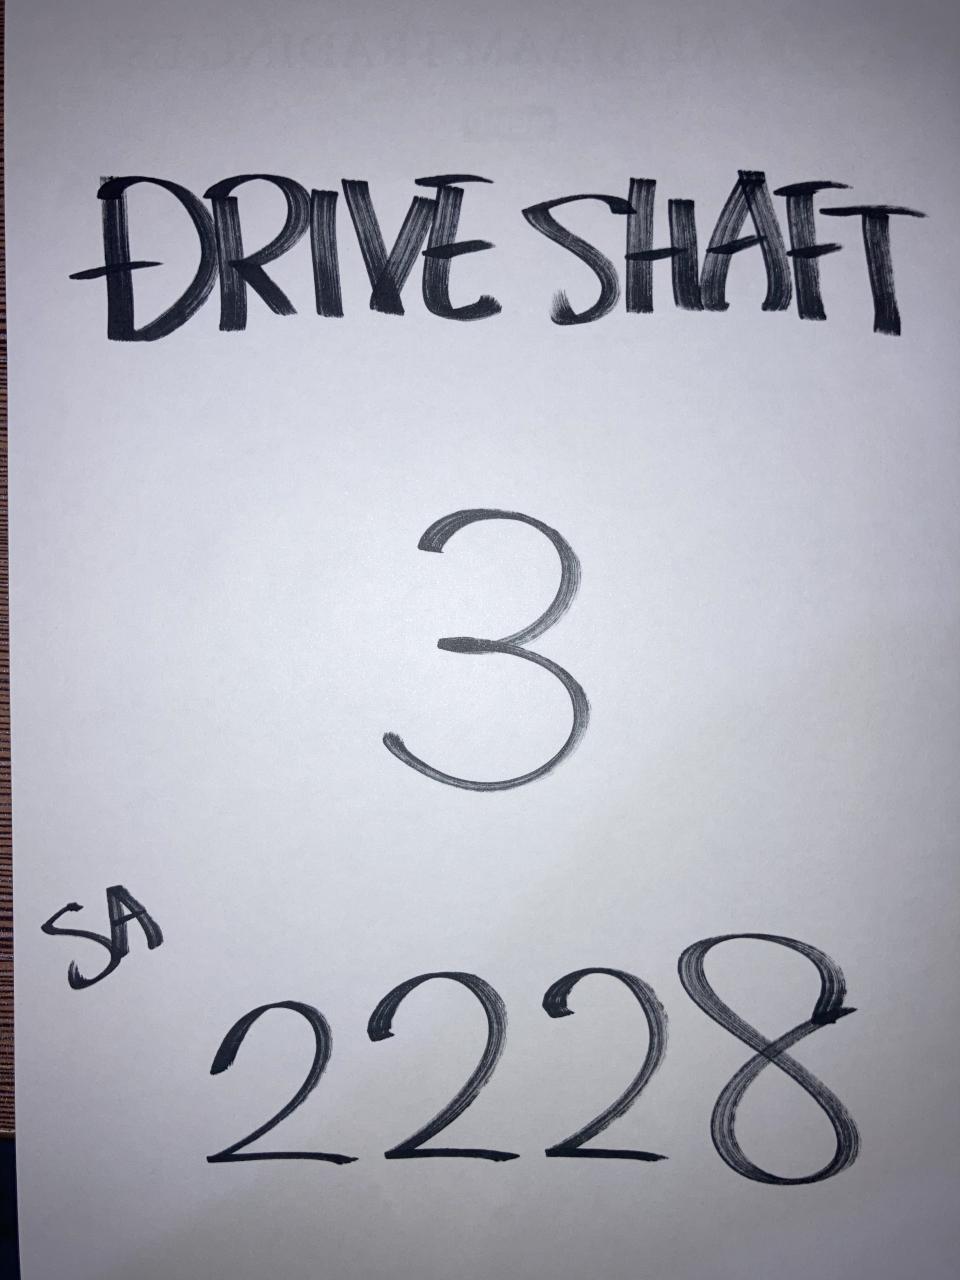 DRIVE SHAFT
3
SA
2228